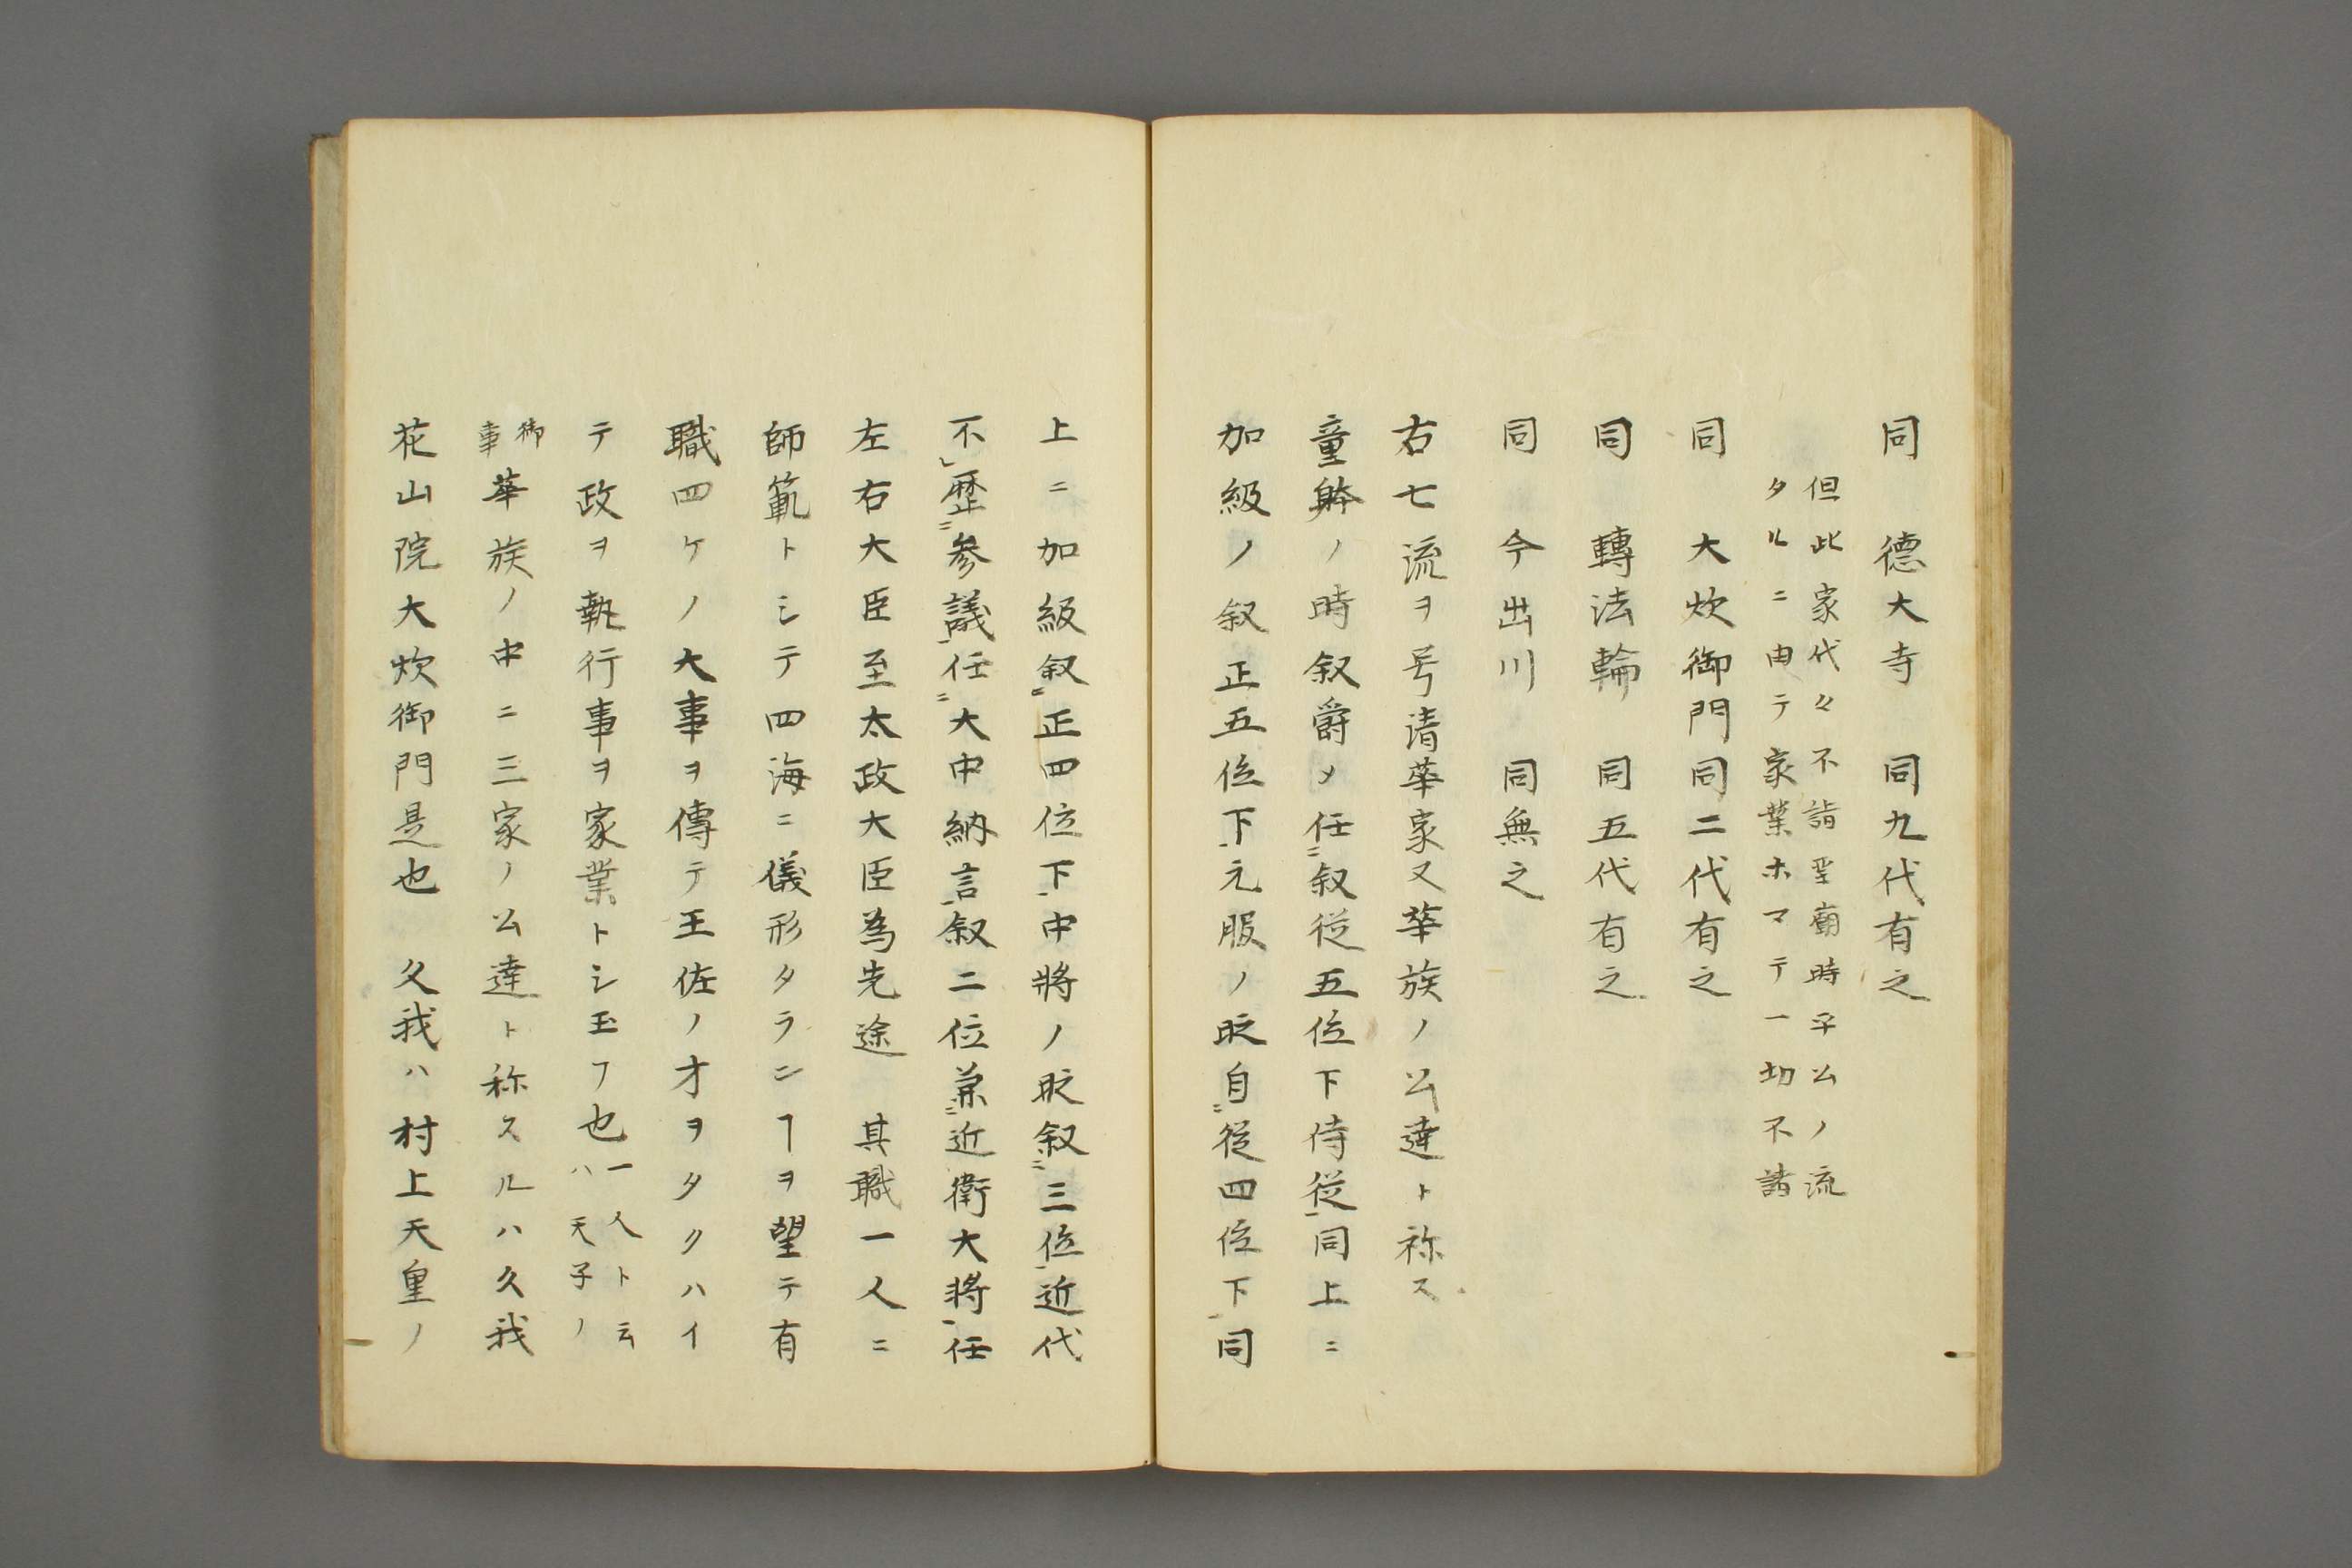 同　德大寺　同九代有之
但此家代々不詣聖廟時平公ノ流
タルニ由テ家業ホマテ一切不詣
同　大炊御門同二代有之
同　轉法輪　同五代有之
同　今出川　同無之
右七流ヲ号清華家又華族ノ公達ト称ス
童躰ノ時叙爵メ任ニ叙従五位下侍従同上ニ
加級ノ叙正五位下元服ノ時自ニ従四位下同
上ニ加級叙ニ正四位下中將ノ時叙ニ三位近代
不レ歴ニ参議任ニ大中納言叙二位兼ニ近衛大將任
左右大臣至太政大臣為先途　其職一人ニ
師範トシテ四海ニ儀形タランヿヲ望テ有
職四ケノ大事ヲ傳テ王佐ノ才ヲタクハイ
テ政ヲ執行事ヲ家業トシ玉フ也
一人ト云
ハ天子ノ
御
事
華族ノ中ニ三家ノ公達ト称スルハ久我
花山院大炊御門是也　久我ハ村上天皇ノ